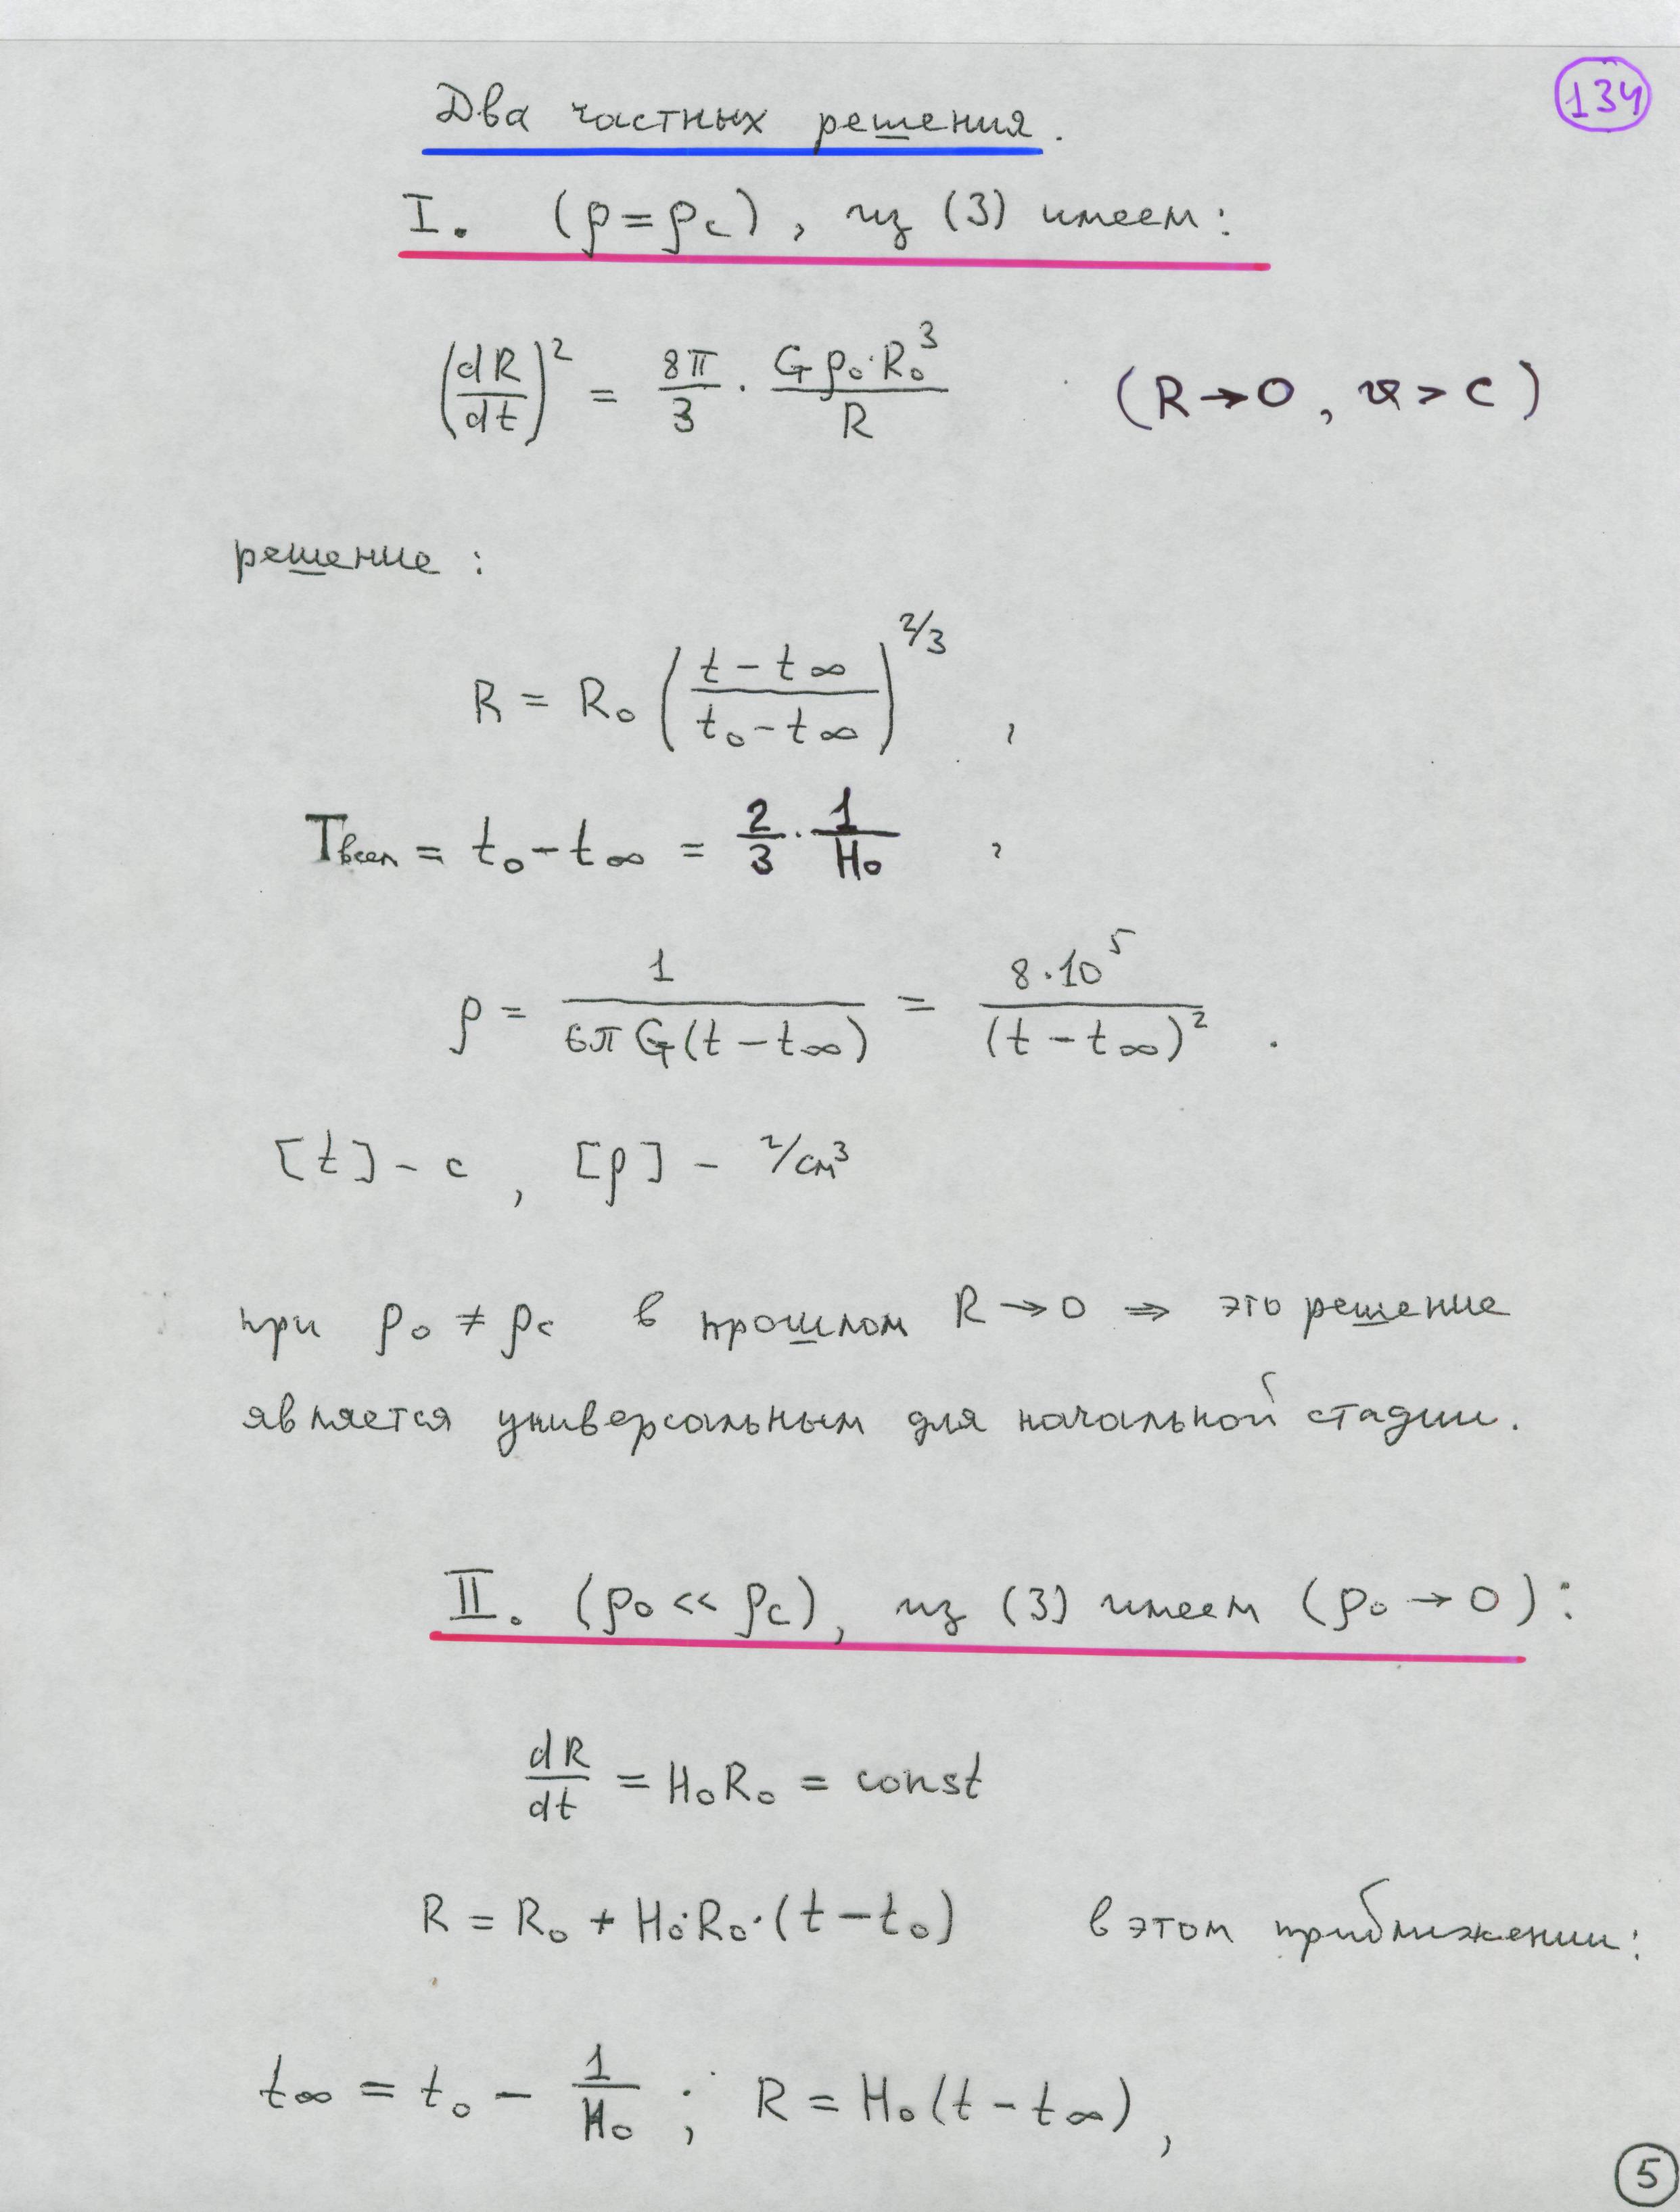 134
Два частных решения.
I. (ρ = ρc), из (3) имеем:
(dR/dt)² = 8π/3 · Gρ₀·R₀³/R (R→0, v > c)
решение:
R = R₀ ((t − t∞)/(t₀ − t∞))^2/3 ,
Tвсел = t₀ − t∞ = 2/3 · 1/H₀ ,
ρ = 1/(6πG(t − t∞)) = 8·10⁵/(t − t∞)² .
[t] − с, [ρ] − г/см³
при ρ₀ ≠ ρc в прошлом R → 0 ⇒ это решение
является универсальным для начальной стадии.
II. (ρ₀ << ρc), из (3) имеем (ρ₀ → 0):
dR/dt = H₀R₀ = const
R = R₀ + H₀·R₀·(t − t₀) в этом приближении:
t∞ = t₀ − 1/H₀ ; R = H₀(t − t∞),
5